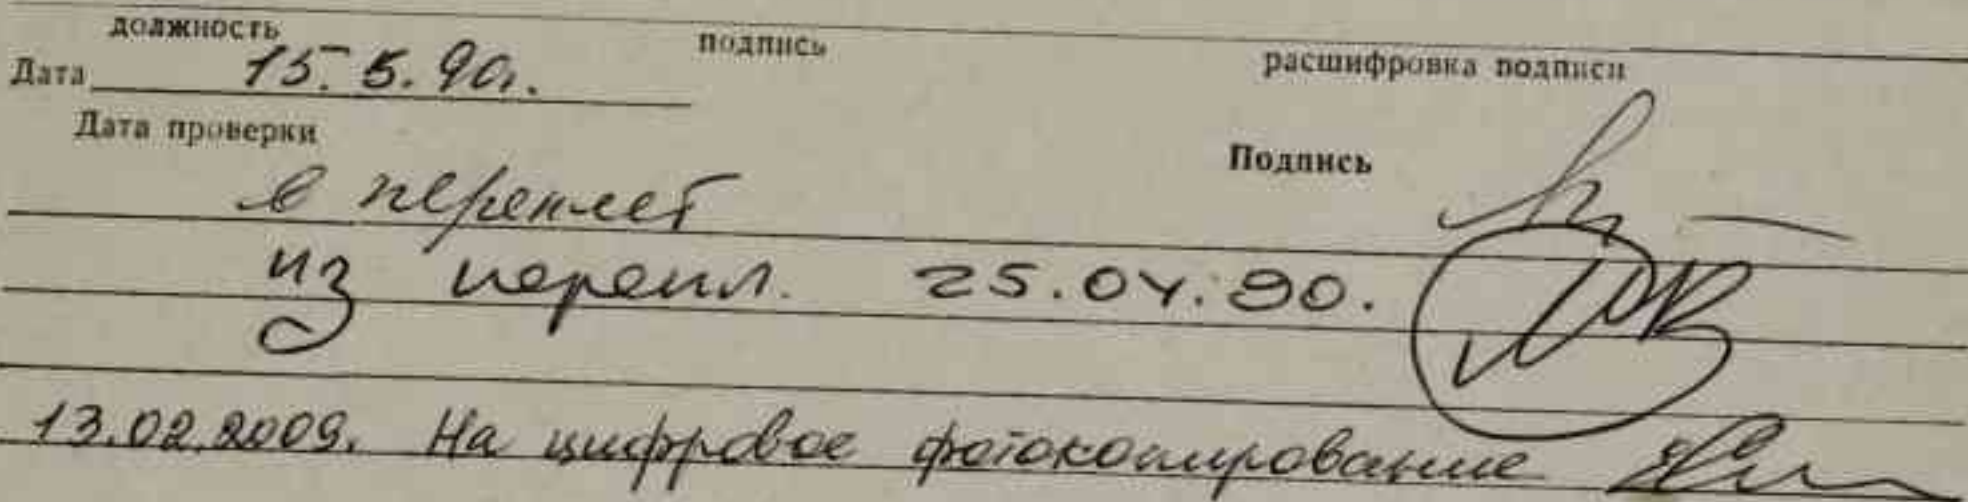 должность подпись расшифровка подписи
Дата 15.5.90г.
Дата проверки Подпись
в переплет
из перепл. 25.04.90.
13.02.2009. На цифровое фотокопирование